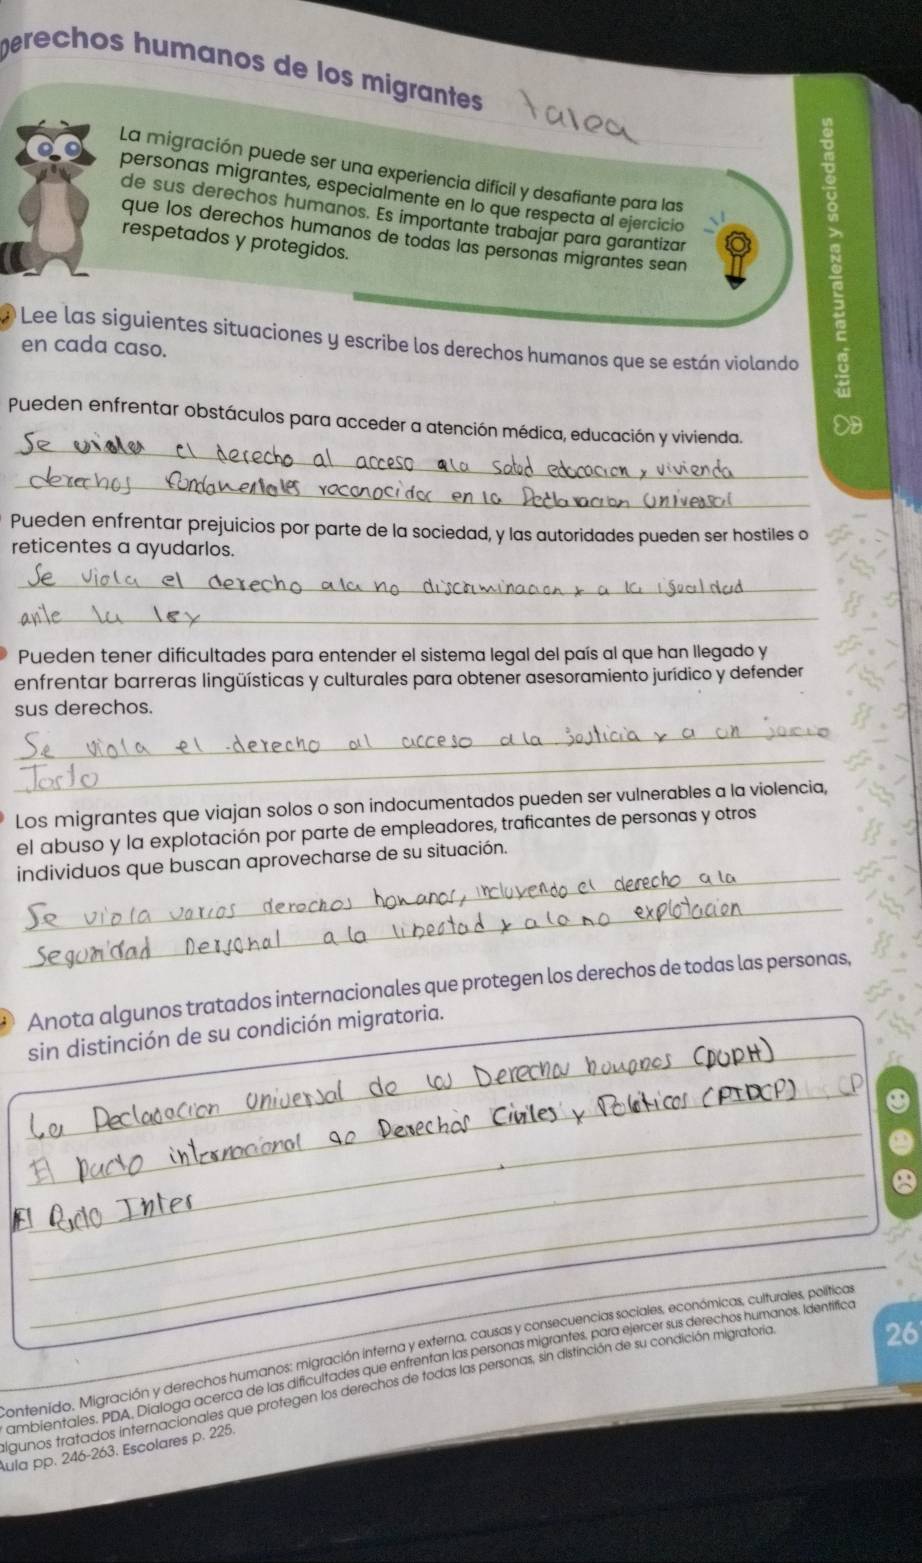 Derechos humanos de los migrantes
Tarea
La migración puede ser una experiencia difícil y desafiante para las
personas migrantes, especialmente en lo que respecta al ejercicio
de sus derechos humanos. Es importante trabajar para garantizar
que los derechos humanos de todas las personas migrantes sean
respetados y protegidos.
Ética, naturaleza y sociedades
Lee las siguientes situaciones y escribe los derechos humanos que se están violando
en cada caso.
Pueden enfrentar obstáculos para acceder a atención médica, educación y vivienda.
Se violar el derecho al acceso ala salod edocacion y vivienda
derechos fondamentales roconocidos en la Declaracion Universal
Pueden enfrentar prejuicios por parte de la sociedad, y las autoridades pueden ser hostiles o
reticentes a ayudarlos.
Se viola el derecho ala no discriminacion y a la igoaldad
ante la ley
Pueden tener dificultades para entender el sistema legal del país al que han llegado y
enfrentar barreras lingüísticas y culturales para obtener asesoramiento jurídico y defender
sus derechos.
Se viola el derecho al acceso ala josticia y a on jocio
Josto
Los migrantes que viajan solos o son indocumentados pueden ser vulnerables a la violencia,
el abuso y la explotación por parte de empleadores, traficantes de personas y otros
individuos que buscan aprovecharse de su situación.
Se viola varios derechos homanos, incluyendo el derecho a la
seguridad personal a la libertad y ala no explotacion
Anota algunos tratados internacionales que protegen los derechos de todas las personas,
sin distinción de su condición migratoria.
La Declaracion Universal de los Derechos houmanos (DUDH)
El pacto internacional de Derechos Civiles y Politicos (PIDCP) CP
El Pacto Inter
Contenido. Migración y derechos humanos: migración interna y externa, causas y consecuencias sociales, económicas, culturales, políticas
y ambientales. PDA. Dialoga acerca de las dificultades que enfrentan las personas migrantes, para ejercer sus derechos humanos. Identifica
algunos tratados internacionales que protegen los derechos de todas las personas, sin distinción de su condición migratoria.
Aula pp. 246-263. Escolares p. 225.
26